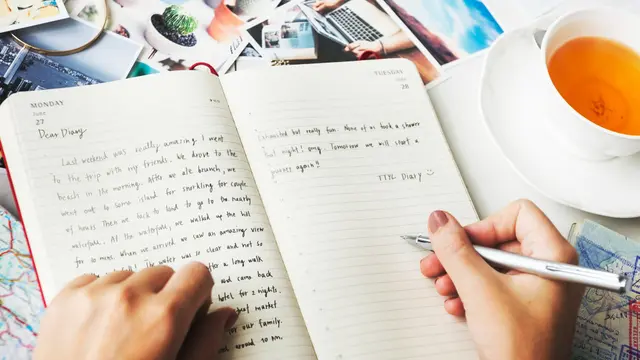 MONDAY
June
27
Dear Diary
Last weekend was really amazing. I went
to the trip with my friends. We drove to the
beach in the morning. After we ate brunch, we
went out to some island for snorkling for couple
of hours. Then we back to land to go to the nearby
waterfall. At the waterfall, we walked up the hill
for 30 mins. When we arrived we saw an amazing view
waterfall! The water was so clear and not so
for a long walk
and came back
hotel for 2 nights.
market
for our family.
around 10 pm.
TUESDAY
June
28
Exhausted but really fun. None of us took a shower
last night! omg. Tomorrow we will start a
journey again!!
TTYL Diary